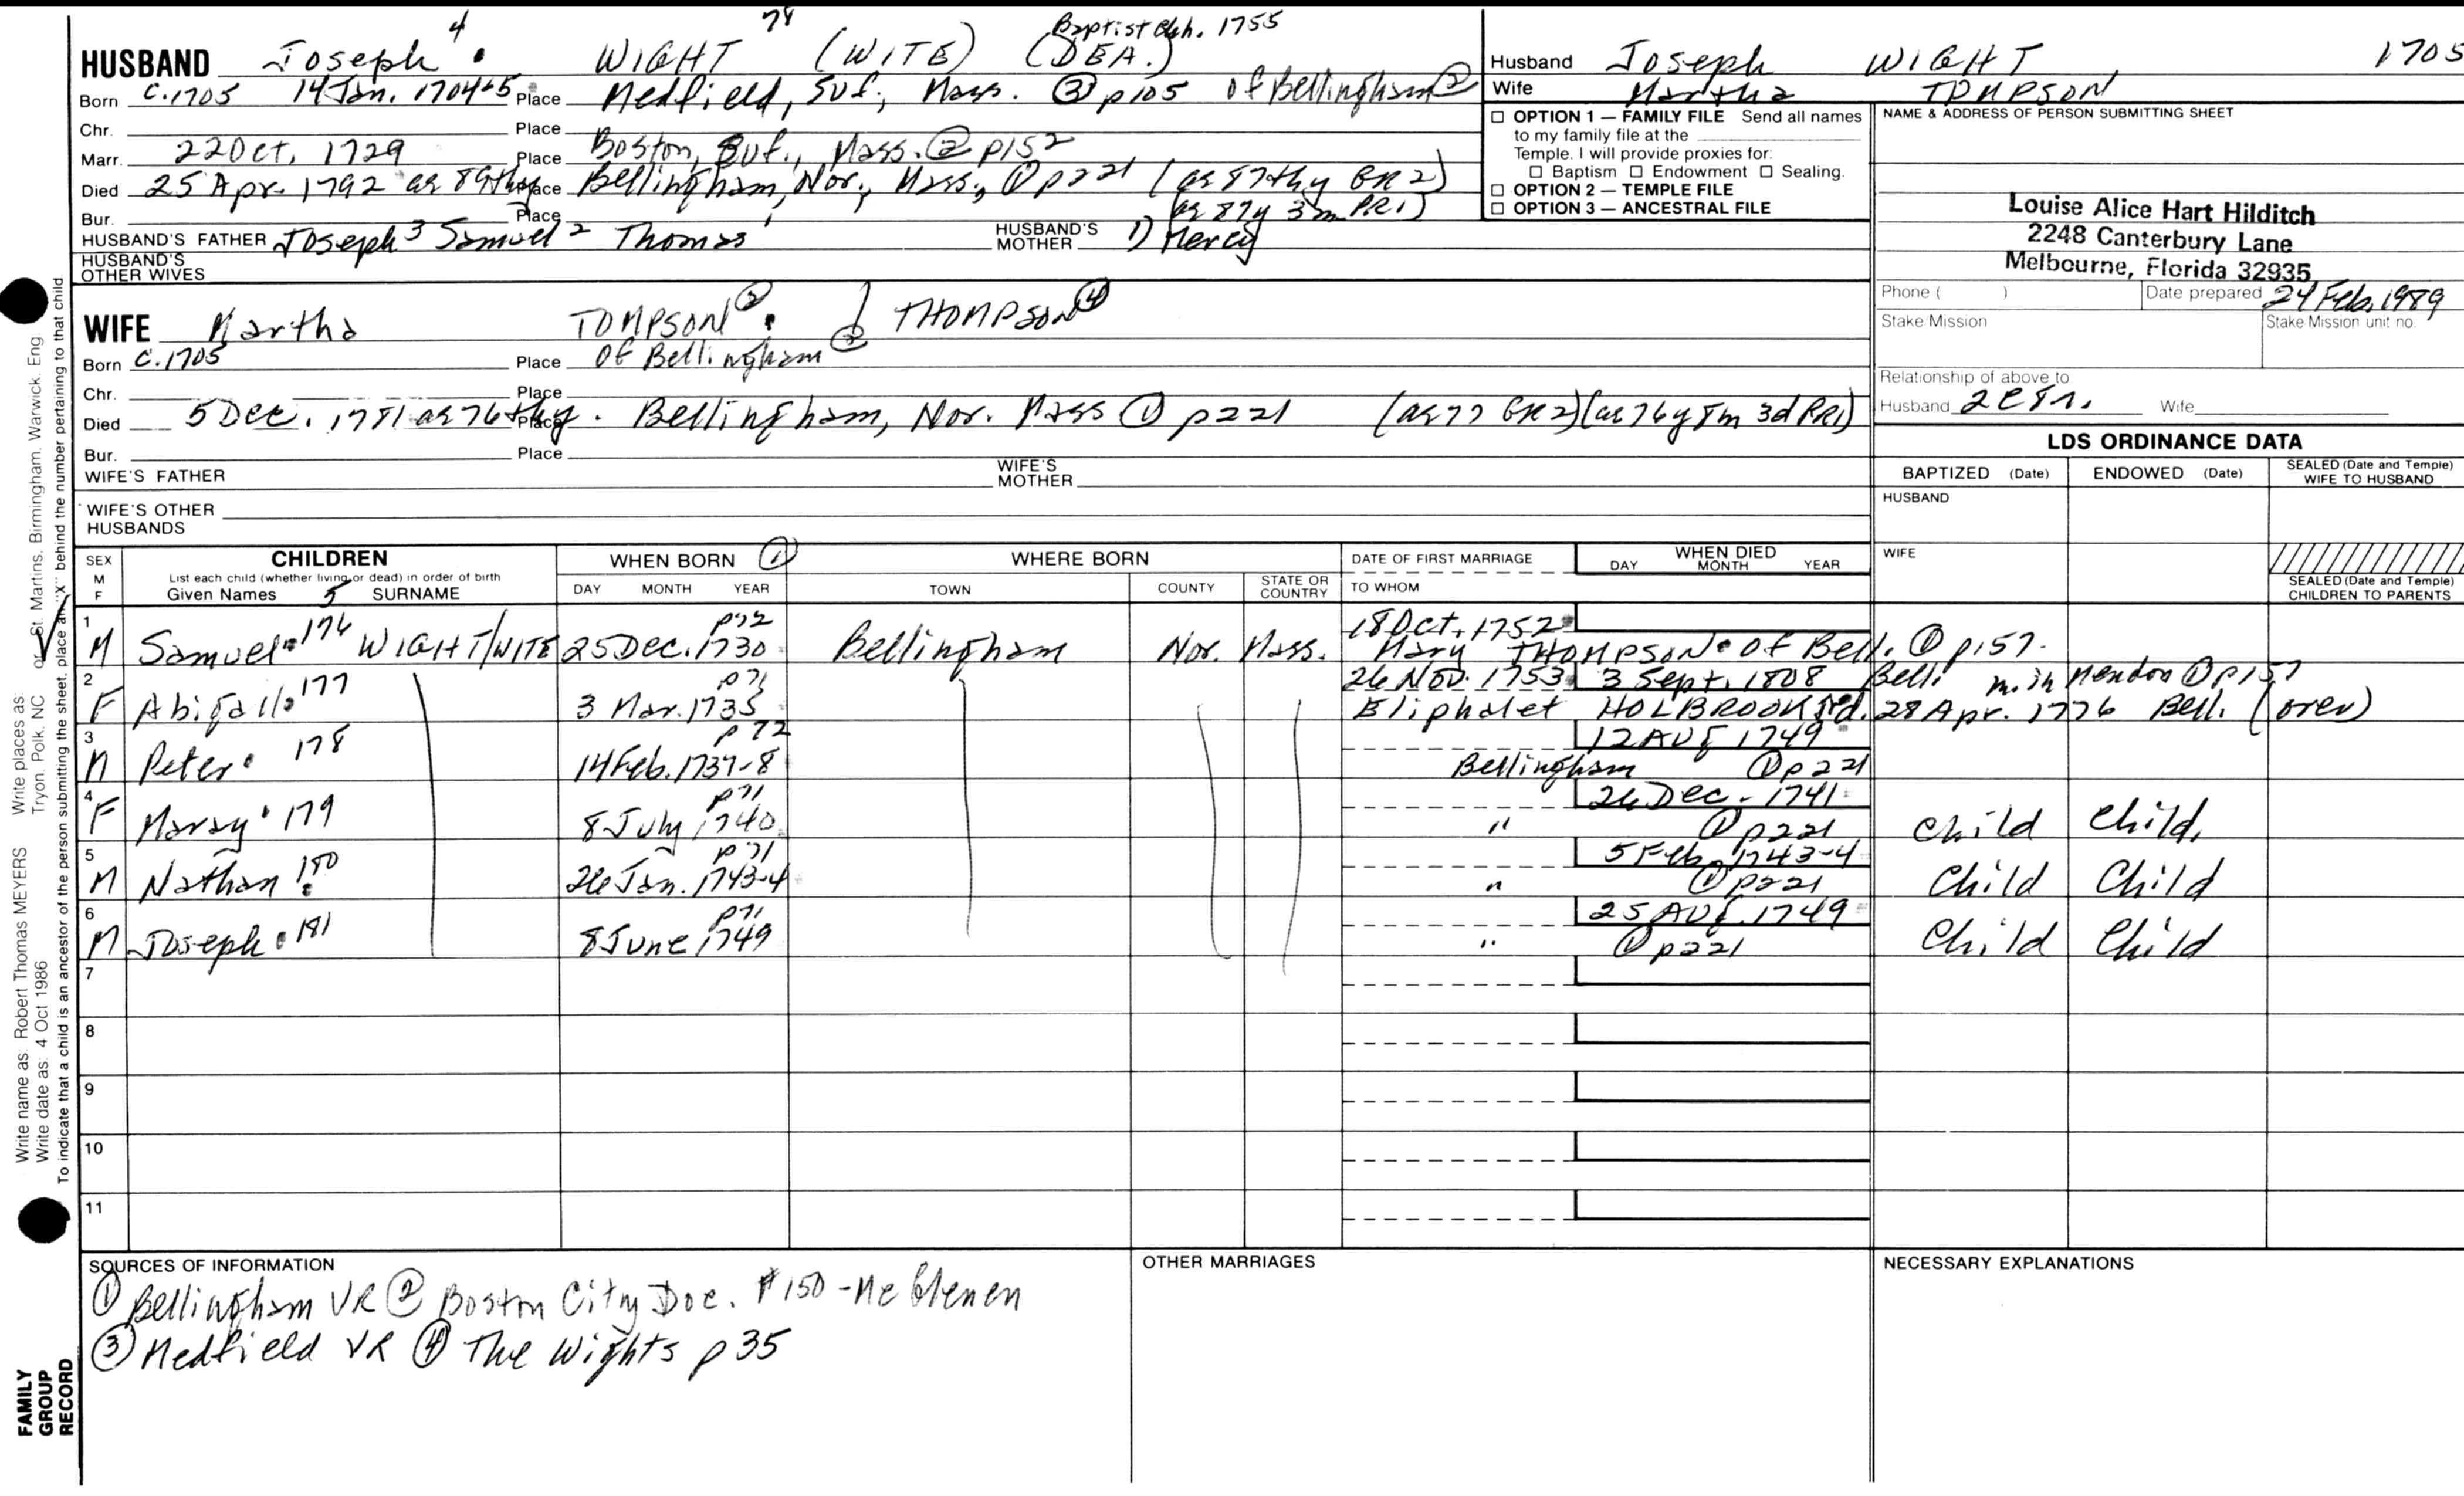 4 78 Baptist Ch. 1755
HUSBAND Joseph WIGHT (WITE) (DEA.)
Born c.1705 14 Jan. 1704-5 Place Medfield, Suf., Mass. ③ p105 of Bellingham ②
Chr. Place
Marr. 22 Oct. 1729 Place Boston, Suf., Mass. ② p152
Died 25 Apr. 1792 ae 89thy Place Bellingham, Nor., Mass., ① p221 (ae 87thy GR2)
Bur. Place (ae 87y 3m PR1)
HUSBAND'S FATHER Joseph 3 Samuel 2 Thomas 1 HUSBAND'S MOTHER 1) Mercy
HUSBAND'S OTHER WIVES
Husband Joseph WIGHT 1705
Wife Martha TOMPSON
☐ OPTION 1 — FAMILY FILE Send all names
to my family file at the
Temple. I will provide proxies for:
☐ Baptism ☐ Endowment ☐ Sealing.
☐ OPTION 2 — TEMPLE FILE
☐ OPTION 3 — ANCESTRAL FILE
NAME & ADDRESS OF PERSON SUBMITTING SHEET
Louise Alice Hart Hilditch
2248 Canterbury Lane
Melbourne, Florida 32935
Phone ( ) Date prepared 24 Feb. 1989
Stake Mission Stake Mission unit no.
Relationship of above to
Husband Wife
WIFE Martha TOMPSON ② THOMPSON ④
Born c.1705 Place of Bellingham ②
Chr. Place
Died 5 Dec. 1781 ae 76thy. Place Bellingham, Nor. Mass ① p221 (ae 77 GR2) (ae 76y 7m 3d PR1)
Bur. Place
WIFE'S FATHER WIFE'S MOTHER
WIFE'S OTHER HUSBANDS
LDS ORDINANCE DATA
BAPTIZED (Date) ENDOWED (Date) SEALED (Date and Temple) WIFE TO HUSBAND
HUSBAND
WIFE
SEALED (Date and Temple) CHILDREN TO PARENTS
SEX M F CHILDREN WHEN BORN ① WHERE BORN DATE OF FIRST MARRIAGE WHEN DIED
List each child (whether living or dead) in order of birth
Given Names 5 SURNAME DAY MONTH YEAR TOWN COUNTY STATE OR COUNTRY TO WHOM DAY MONTH YEAR
1 p72 18 Oct. 1752
M Samuel 176 WIGHT/WITE 25 Dec. 1730 Bellingham Nor. Mass. Mary THOMPSON of Bell. ① p157.
2 p71 26 Nov. 1753 3 Sept. 1808 Bell. m. in Mendon ① p157
F Abigail 177 3 Mar. 1735 Eliphalet HOLBROOK 28 Apr. 1776 Bell. (over)
3 p72 12 Aug 1749
M Peter 178 14 Feb. 1737-8 Bellingham ① p221
4 p71 26 Dec. 1741
F 179 8 July 1740 " ① p221 Child Child.
5 p71 5 Feb. 1743-4
M Nathan 180 26 Jan. 1743-4 " ① p221 Child Child
6 p71 25 Aug. 1749
M Joseph 181 8 June 1749 " ① p221 Child Child
7
8
9
10
11
SOURCES OF INFORMATION
① Bellingham VR ② Boston City Doc. #150
③ Medfield VR ④ The Wights p35
OTHER MARRIAGES
NECESSARY EXPLANATIONS
FAMILY GROUP RECORD
Write name as: Robert Thomas MEYERS Write places as: St. Martins, Birmingham, Warwick, Eng
Write date as: 4 Oct 1986 Tryon, Polk, NC or
To indicate that a child is an ancestor of the person submitting the sheet, place an "X" behind the number pertaining to that child